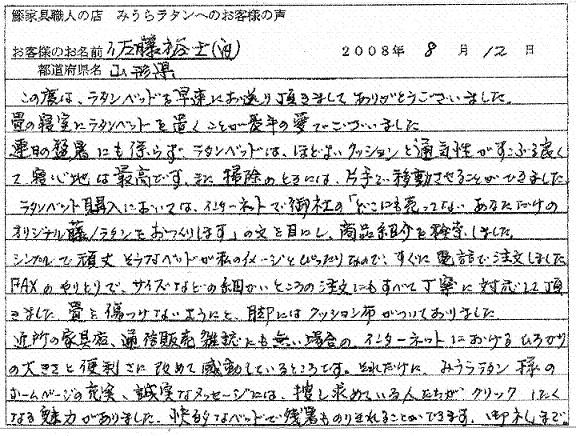 籐家具職人の店　みうらラタンへのお客様の声
お客様のお名前 佐藤裕士(的) 2008年 8 月 12 日
都道府県名 山形県
この度は、ラタンベッドを早速にお送り頂きまして ありがとうございました。
畳の寝室にラタンベットを置くことが長年の夢でございました
連日の猛暑にも係らず ラタンベッドは、ほどよいクッションと通気性がすこぶる良く
て寝心地は最高です。また 掃除のときには、片手で移動させることができました
ラタンベット購入においては、インターネットで御社の「どこにも売ってない あなただけの
オリジナル籐/ラタンをおつくりします」の文を目にし、商品紹介を検索しました。
シンプルで頑丈そうなベッドが私のイメージとぴったりなので、すぐに電話で注文しました
FAXのやりとりで、サイズなどの細かいところの注文にもすべて丁寧に対応して頂
きました 畳を傷つけないようにと、脚にはクッション布がついておりました
近所の家具店、通信販売雑誌にも無い場合の、インターネットにおけるひろがり
の大きさと便利さに改めて感動しているところです。それだけに、みうらラタン様の
ホームページの充実、誠実なメッセージには、捜し求めている人たちが、クリックしたく
なる魅力がありました。快適なベッドで残暑ものりきれることができます。御礼まで。